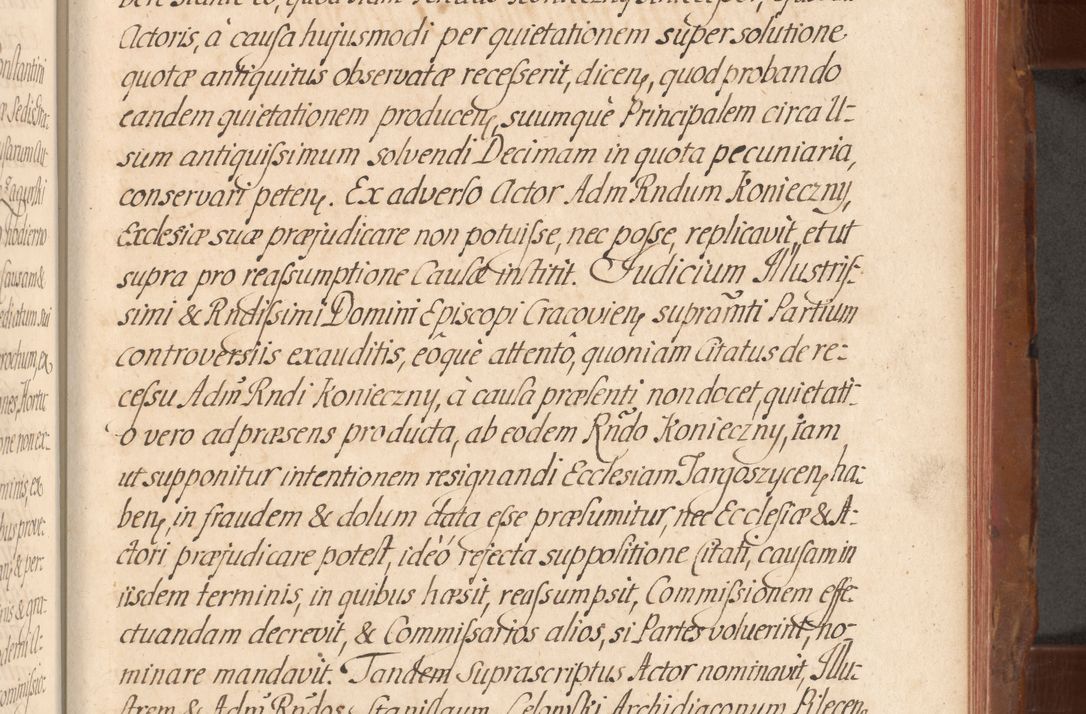 Actoris, à causa hujusmodi per quietationem super solutione
quotæ antiquitus observatæ recesserit, dicen, quod probando
eandem quietationem producen, suumquè Principalem circa U-
sum antiquissimum solvendi Decimam in quota pecuniaria,
conservari peten. Ex adverso Actor Adm Rndum Konieczny,
Ecclesiæ suæ præjudicare non potuisse, nec posse, replicavit, et ut
supra pro reassumptione Causæ institit. Judicium Illustris-
simi & Rndissimi Domini Episcopi Cracovien, supramti Partium
controversiis exauditis, eôquè attentô, quoniam Citatus de re-
cessu Adm Rndi Konieczny, à causa præsenti non docet, quietati-
o vero ad præsens producta, ab eodem Rndo Konieczny, iam
ut supponitur intentionem resignandi Ecclesiam Targoszycen, ha-
ben, in fraudem & dolum data esse præsumitur, nec Ecclesiæ & A-
ctori præjudicare potest, ideò rejecta suppositione Citati, causam in
iisdem terminis, in quibus hæsit, reassumpsit, Commissionem effe-
ctuandam decrevit, & Commissarios alios, si Partes voluerint, no-
minare mandavit. Tandem suprascriptus Actor nominavit, Illu-
strem & Adm Rndos Stanislaum Lelowski Archidiaconum Pilecen